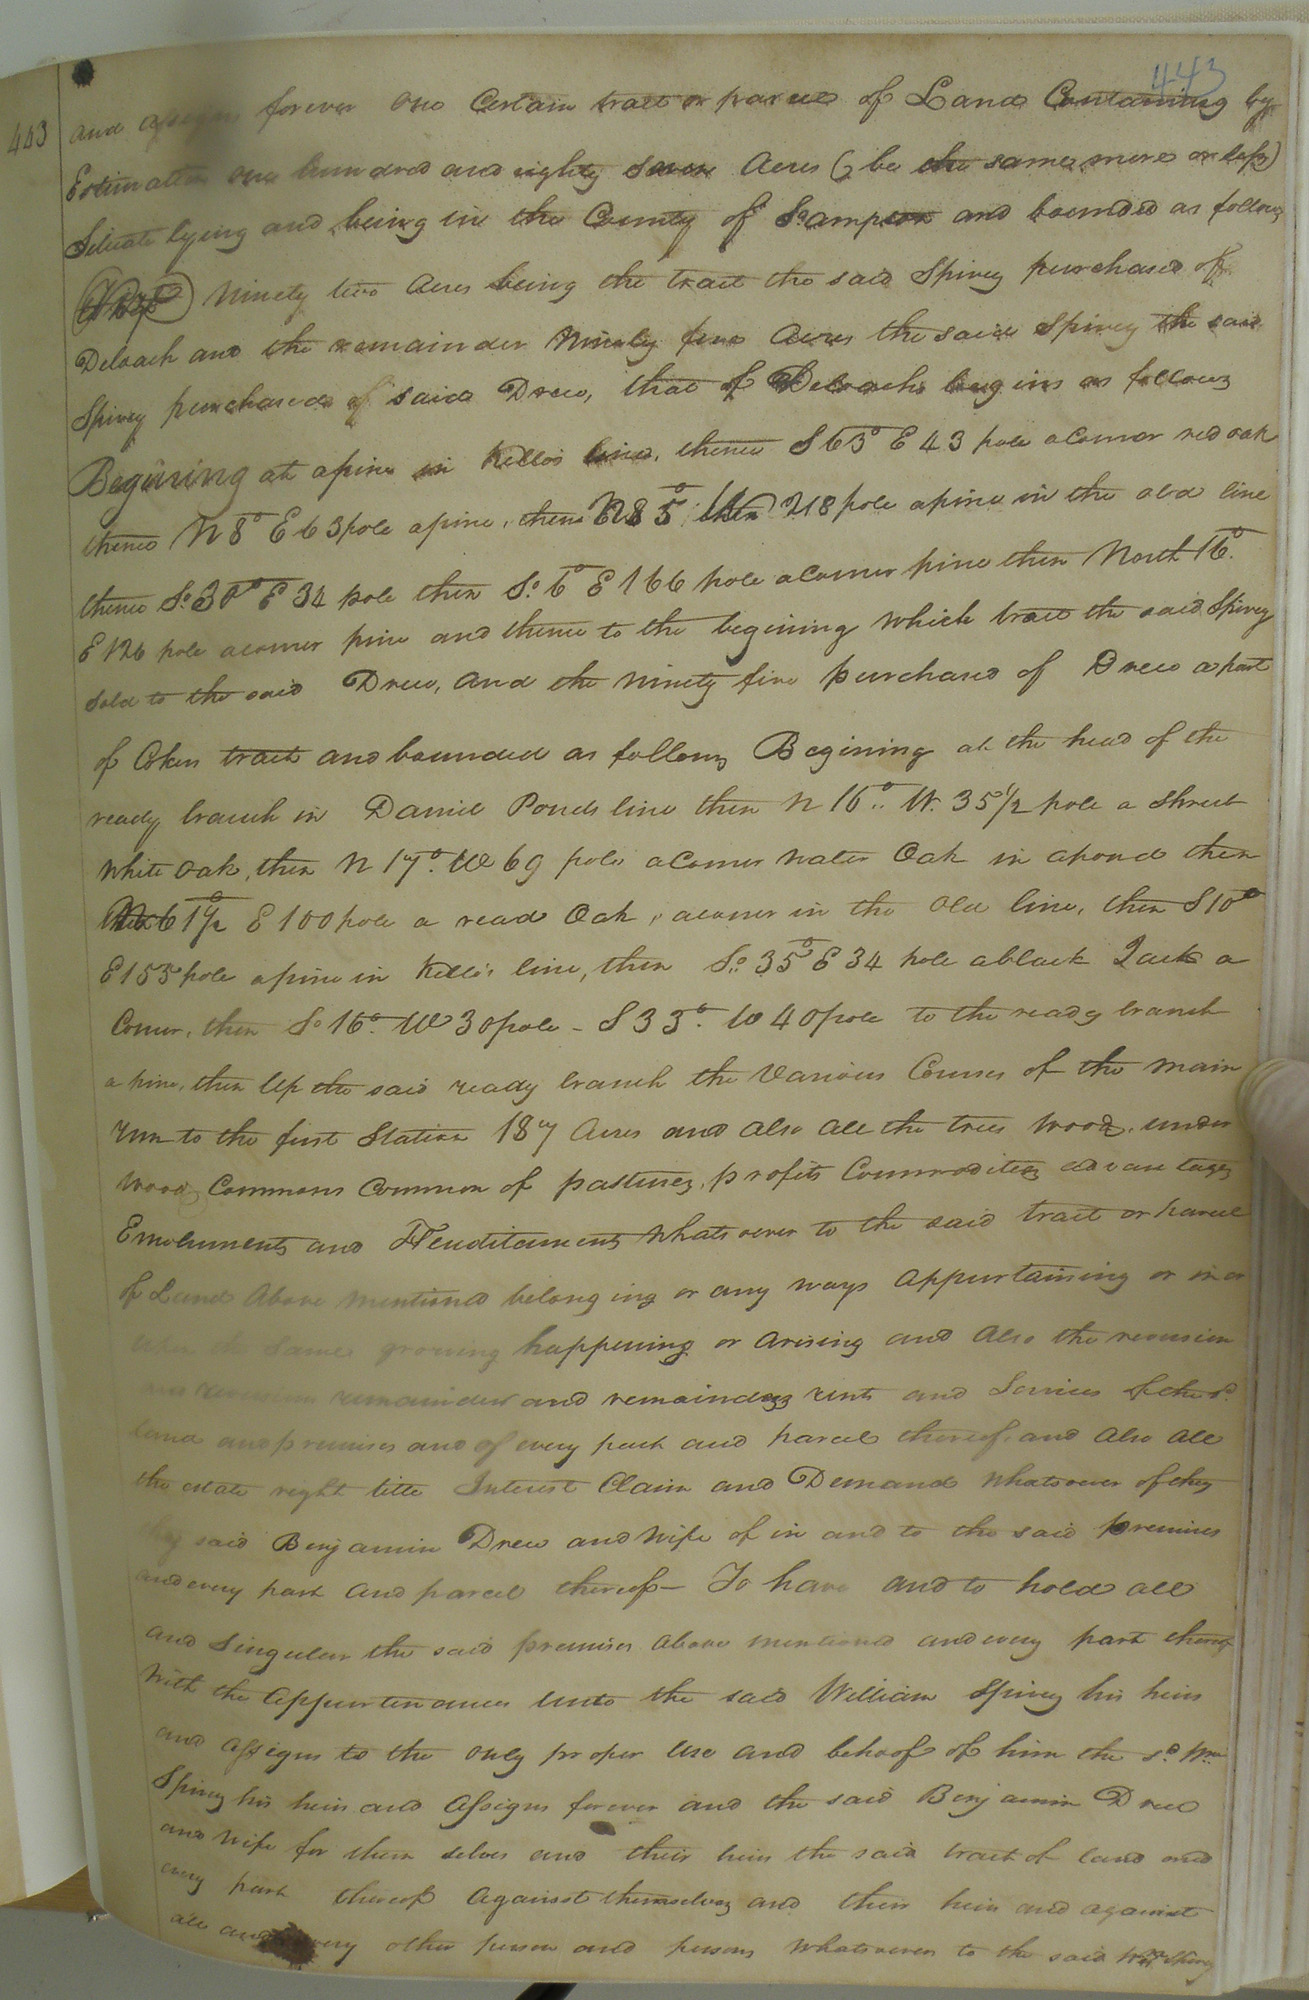 443
443
and assigns forever one Certain tract or parcel of Land Containing by
Estimation one hundred and eighty seven Acres (, be the same more or less)
Situate lying and being in the County of Sampson and bounded as follows
Ninety two Acres being the tract the said Spivey purchased of
Deloach and the remainder Ninety five Acres the said Spivey the said
Spivey purchased of said Drew, that of Deloachs begins as follows
Begining at a pine in Kello's line, thence S 63° E 43 pole a Corner red oak
thence N 8° E 63 pole a pine, thence N 85 W 218 pole a pine in the old line
thence So. 30° E 34 pole then So. 6° E 166 pole a Corner pine then North 16°.
E 126 pole a corner pine and thence to the begining which tract the said Spivey
sold to the said Drew, and the ninety five purchased of Drew a part
of Cokers tract and bounded as follows Begining at the head of the
ready branch in Daniel Ponds line then N 16°.. W. 35 1/2 pole a Shrub
white oak, then N 17°. W 69 poles a Corner water Oak in a pond then
61 1/2° E 100 pole a read Oak, a corner in the Old line, then S 10°
E 155 pole a pine in Kello's line, then So. 35° E 34 pole a black Jack a
Corner, then So 16°. W 30 pole - S 33°. W 40 pole to the ready branch
a pine, then Up the said ready branch the Various Courses of the main
run to the first Station 187 Acres and also all the trees woods, under
woods, Commons Common of pastures, profits Commodities advantages
Emoluments and Heriditaments whatsoever to the said tract or parcel
of Land Above mentioned belonging or any ways appurtaining or in or
upon the same growing happening or arising and Also the reversion
and reversions remainder and remainders rents and Services of the sd.
land and premises and of every part and parcel thereof, and Also all
the estate right title Interest Claim and Demand whatsoever of they
they said Benjamin Drew and wife of in and to the said premises
and every part and parcel thereof - To have and to hold all
and Singular the said premises above mentioned and every part thereof
with the appurtenances unto the said William Spivey his heirs
and assigns to the only proper use and behoof of him the sd. Wm
Spivey his heirs and assigns forever and the said Benjamin Drew
and wife for them selves and their heirs the said tract of land and
every part thereof against themselves and their heirs and against
all and every other person and persons whatsoever to the said Wm Spivey